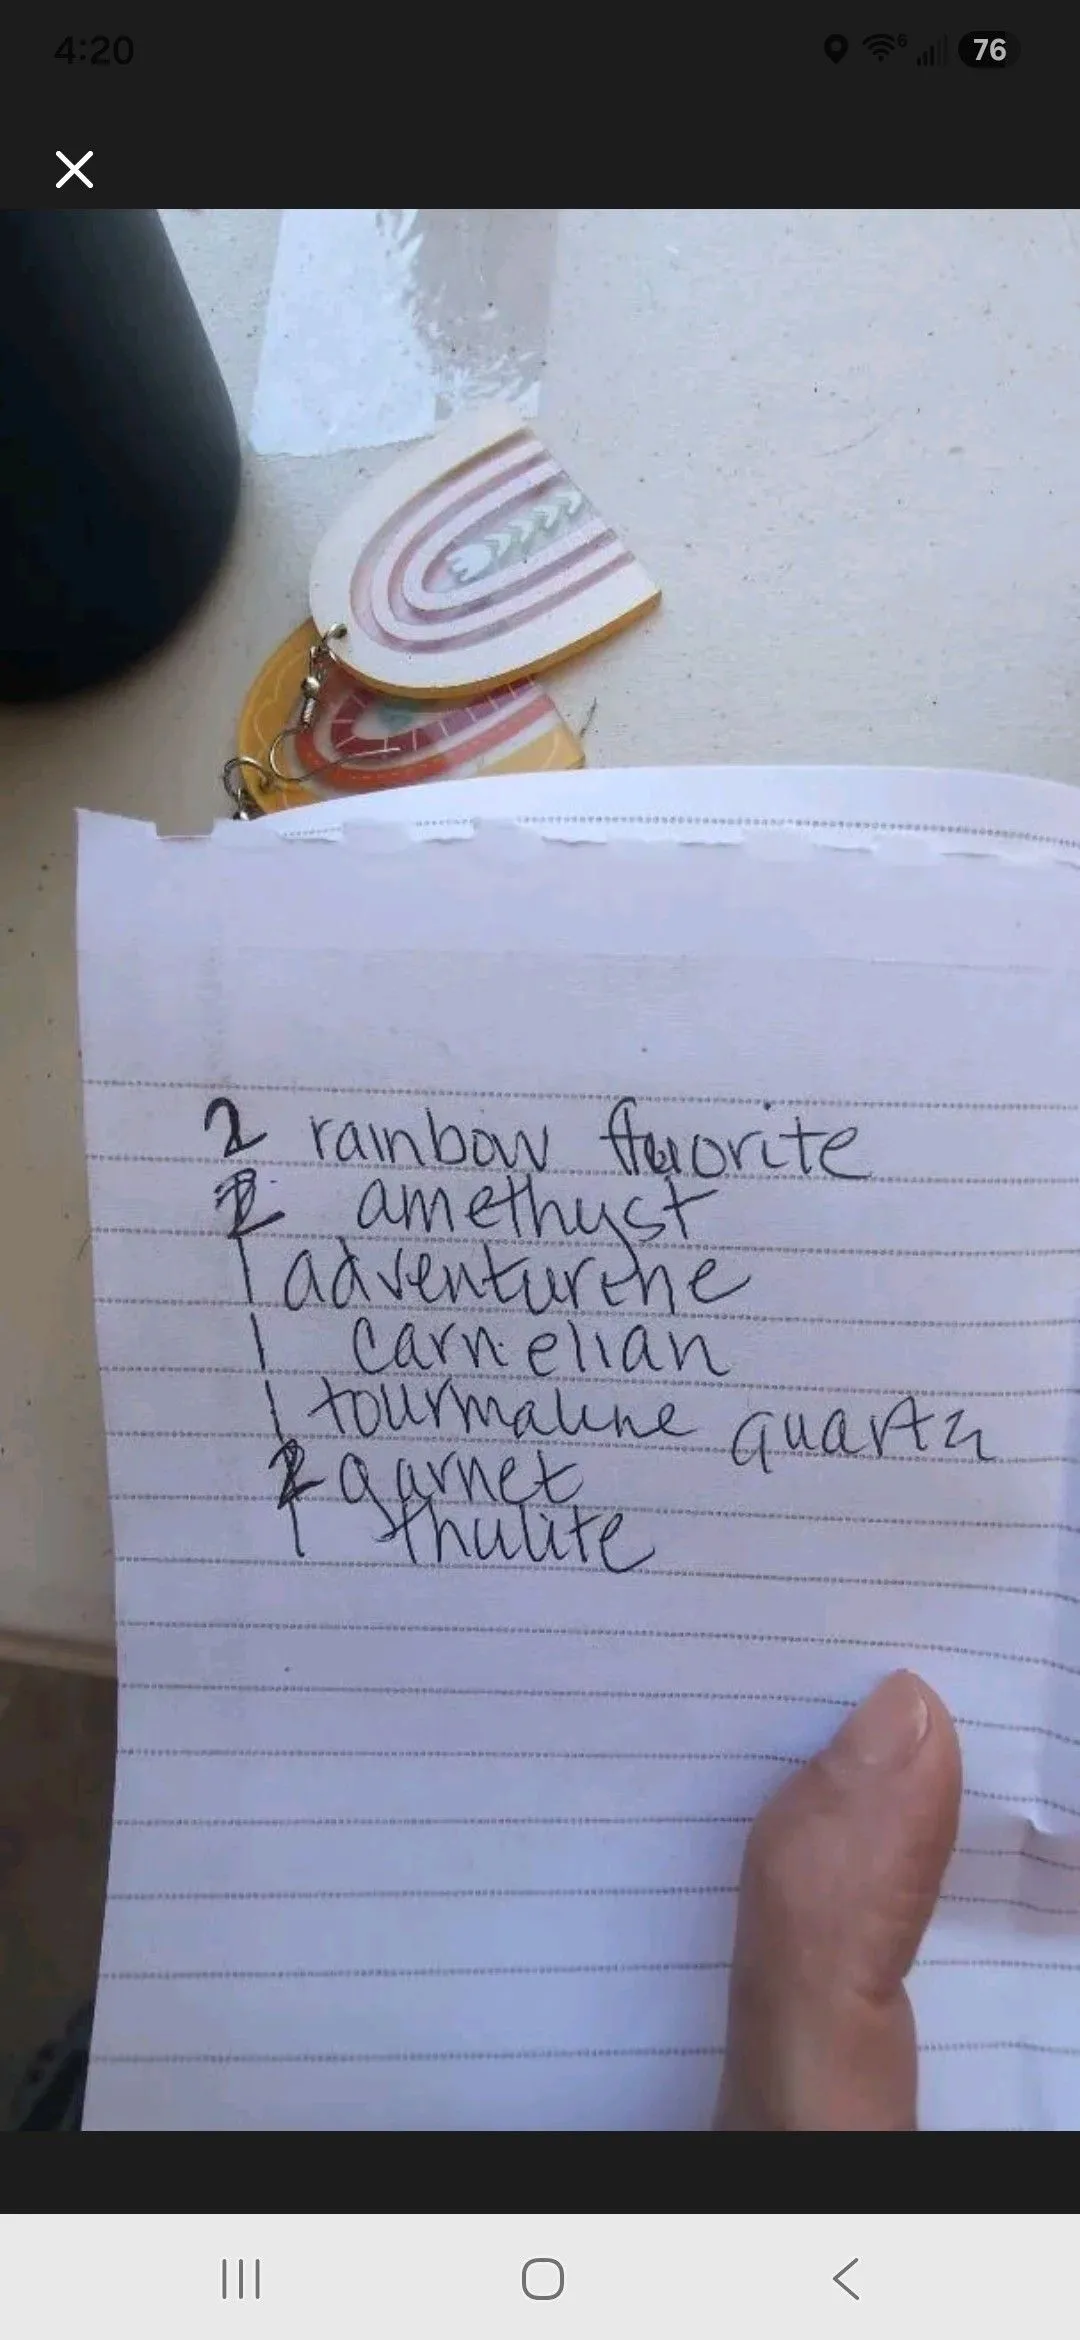 4:20
6
76
2 rainbow fluorite
2 amethyst
1 adventurine
1 carnelian
1 tourmaline quartz
2 garnet
1 thulite